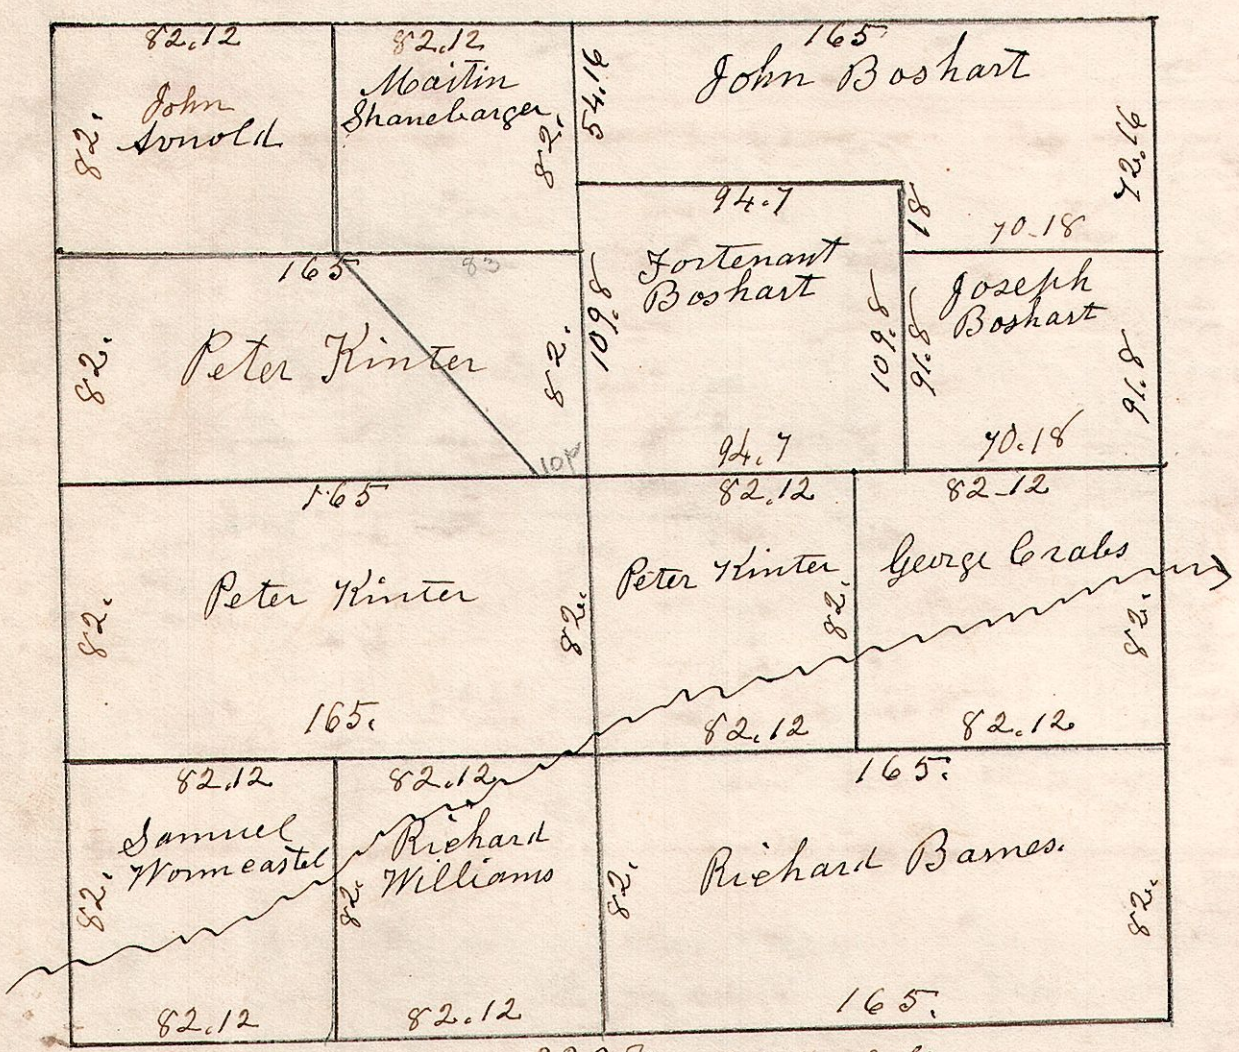 82.12
John
Arnold
82.
82.12
Martin
Shanebarger
82.
165
John Boshart
54.16
72.16
18
70.18
94.7
Fortenant
Boshart
109.8
109.8
94.7
Joseph
Boshart
91.8
91.8
70.18
165
83
Peter Kinter
82.
82.
10p
165
Peter Kinter
82.
82.
165.
82.12
Peter Kinter
82.
82.12
82-12
George Crabs
82.
82.12
82.12
Samuel
Wormcastel
82.
82.12
82.12
Richard
Williams
82.
82.12
165.
Richard Barnes.
82.
82.
165.